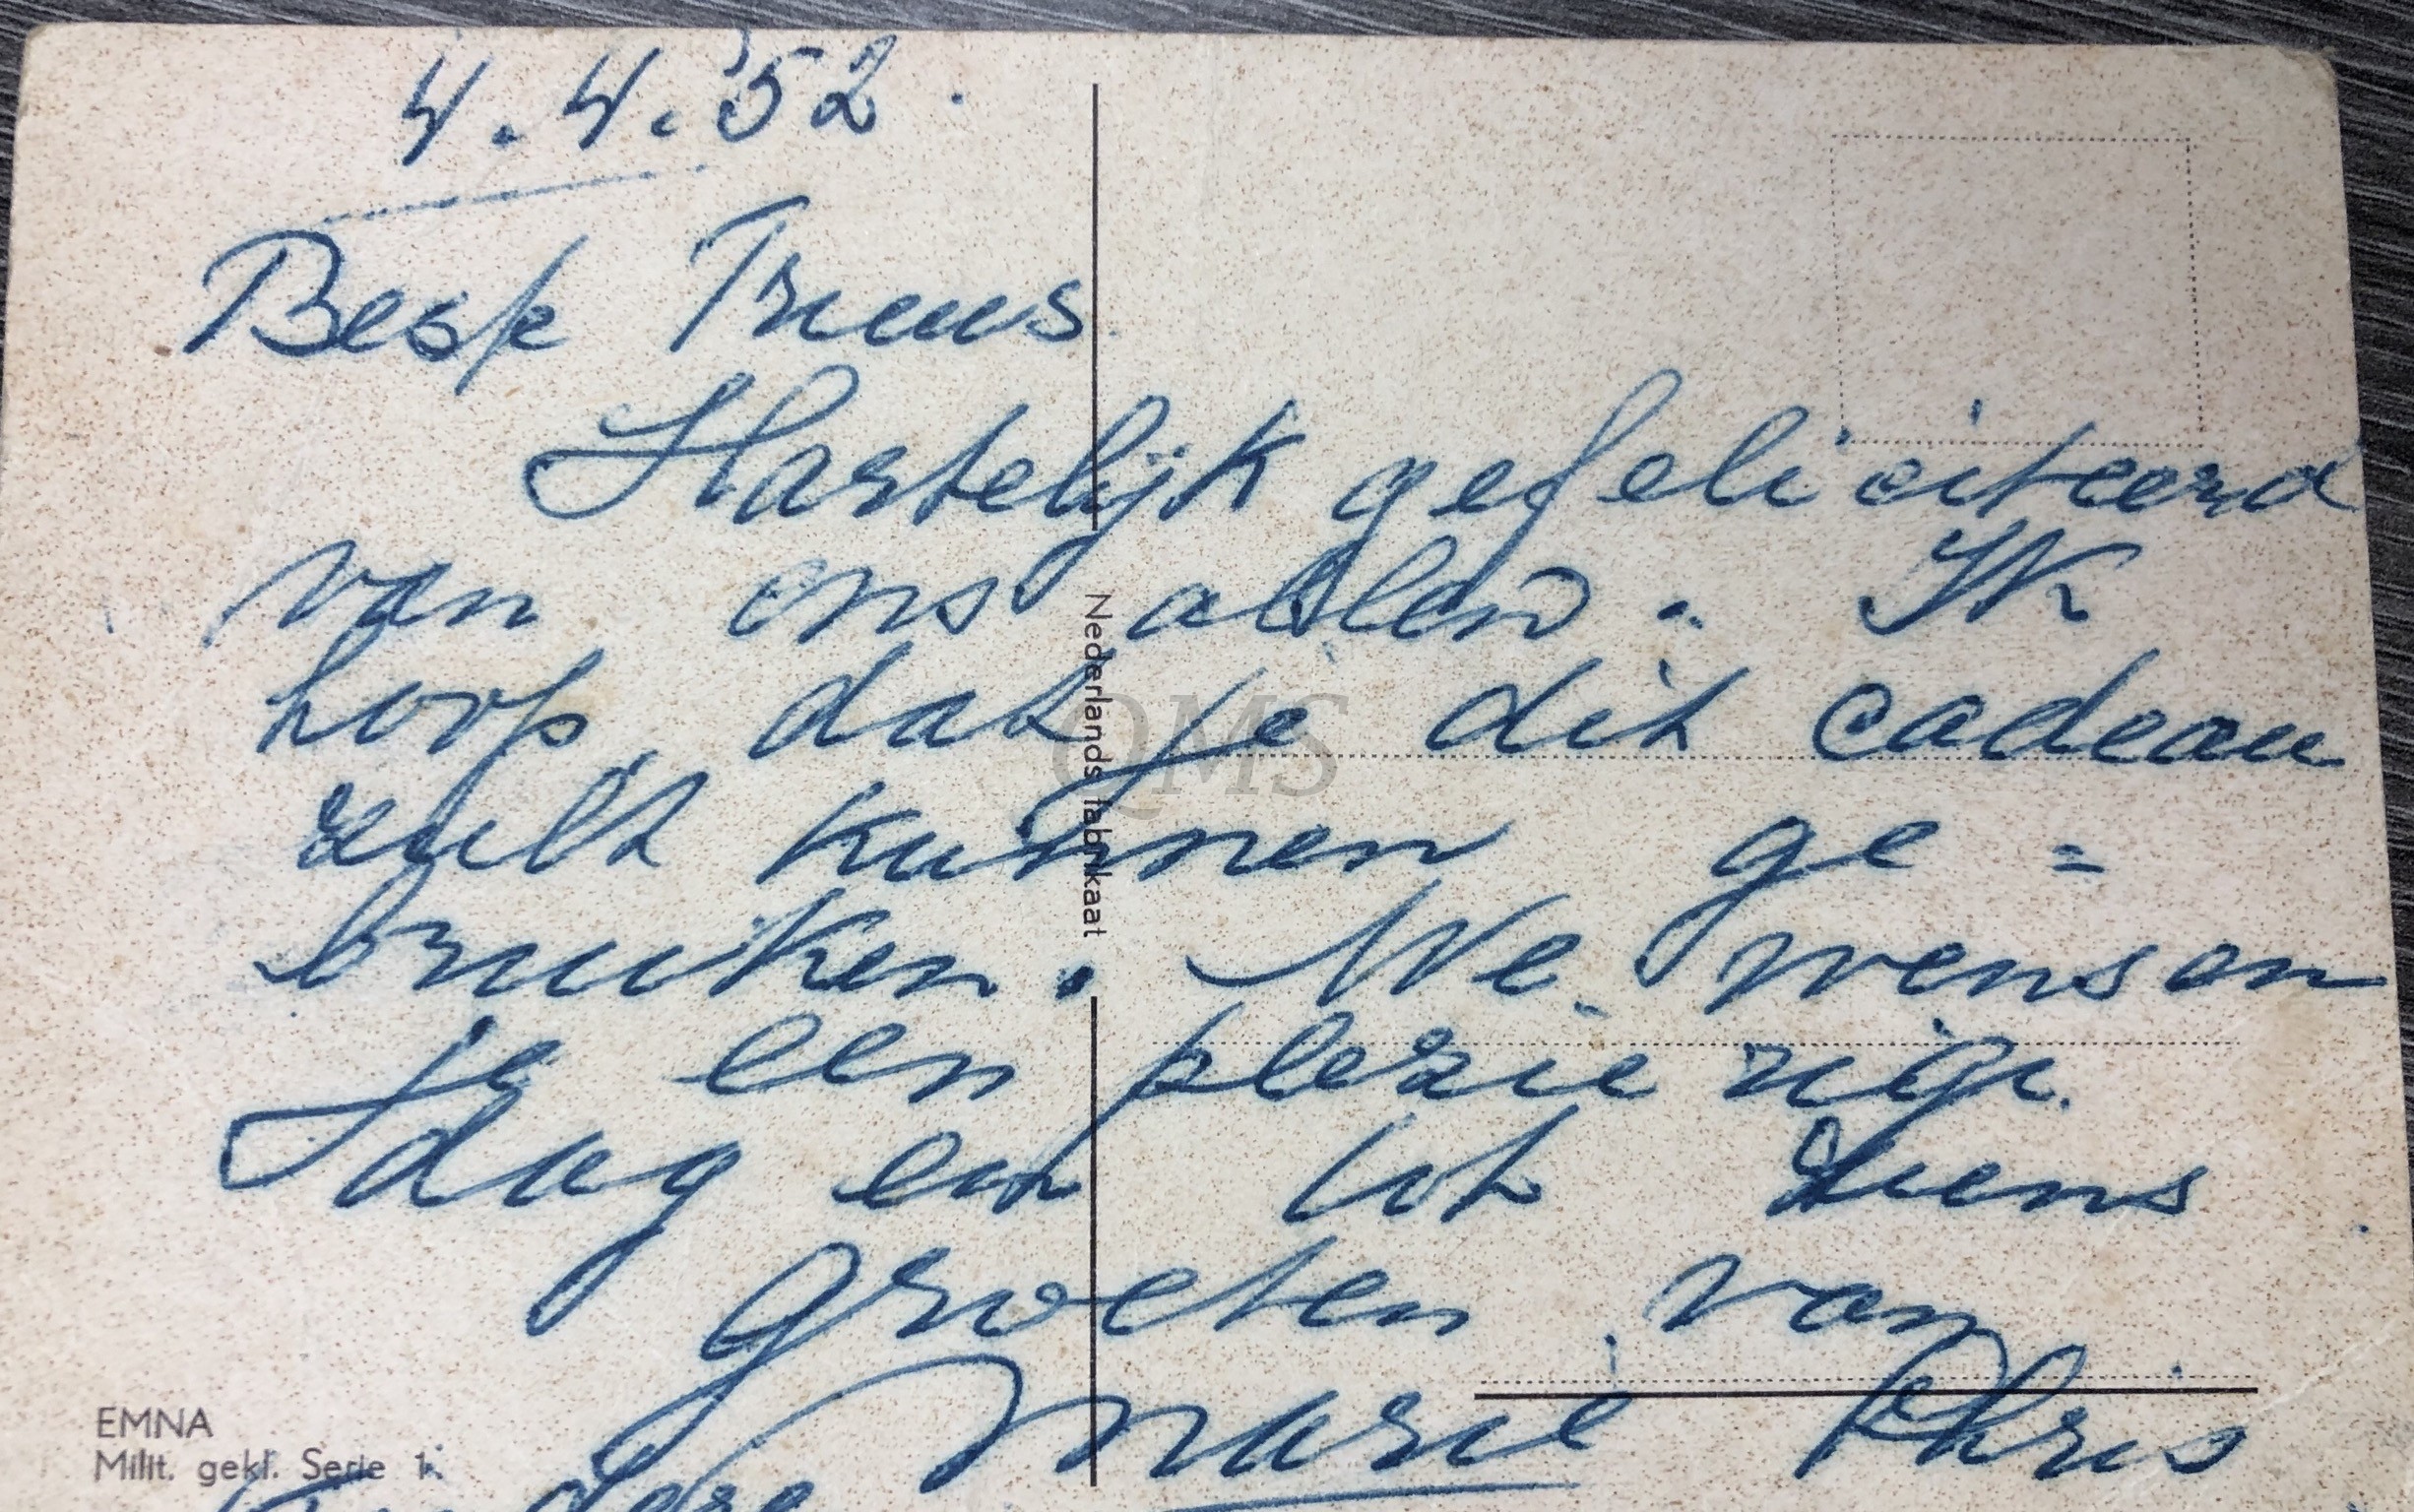 4.4.'52.
Beste Truus.
Hartelijk gefeliciteerd
van ons allen. Ik
hoop dat je dit cadeau
zult kunnen ge=
bruiken. We wensen
je een plezierige
dag en tot ziens
groeten van
Marie Chris
Nederlands fabrikaat
QMS
EMNA
Milit. gekl. Serie 1.